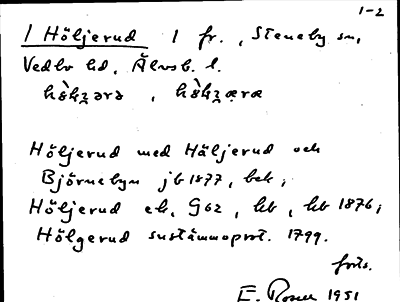 1-2
1 Höljerud 1 fr., Steneby sn,
Vedbo hd, Älvsb. l.
Höljerud med Häljerud och
Björnebyn jb 1877, bek;
Höljerud ek, G62, kb, hb 1876;
Hölgerud sustämmoprot. 1799.
forts.
E. Rosen 1951